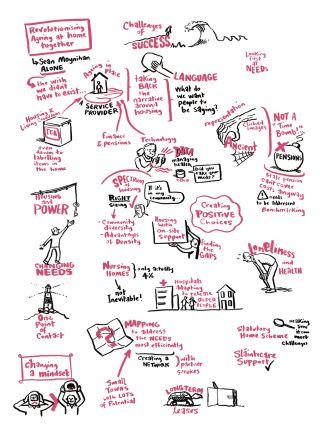 Revolutionising
Ageing at home
together
Sean Moynihan
ALONE
the wish
we didn't
have to exist...
Ageing in
Place
SERVICE
PROVIDER
Challenges
of
SUCCESS
LANGUAGE
taking
BACK
the
narrative
around
housing
What do
we want
people to
be saying!
Looking
at
NEEDS
representation
images
Ancient
NOT A
"Time
Bomb"
PENSIONS
State pension
costs anyway
needs
to be addressed
Benchmarking
Housing &
even
down to
labelling
items in
the home
Finance
& Pensions
Technology
DATA
managing
health
Did you
take your
meds?
SPECTRUM
of
housing
RIGHT
Sizing
If it's
in my
community...
- Community
- Diversity
- Advantages
of Density
Creating
POSITIVE
Choices
Housing
with
on-site
support
Finding
the
GAPS
HOUSING
and
POWER
CHANGING
NEEDS
Nursing
Homes
only actually
4%
not
Inevitable!
Loneliness
and
HEALTH
Hospitals
adapting
to
OLDER
PEOPLE
One
Point
of
Contact
MAPPING
to address
the NEEDS
most efficiently
Creating a
NETWORK
with
partner
services
Statutory
Home Scheme
challenges
Support
changing
a mindset
Small
Towns
with LOTS
of Potential
LONGTERM
leases